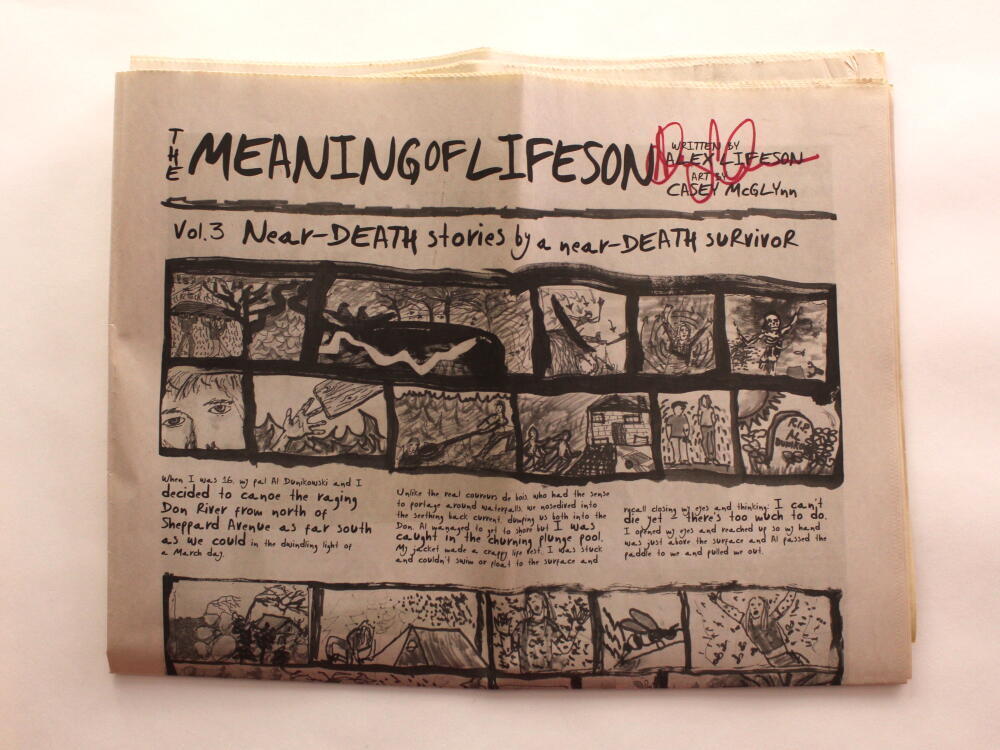 THE MEANING OF LIFESON
WRITTEN BY
ALEX LIFESON
ART BY
CASEY McGLYnn
Vol.3 Near-DEATH stories by a near-DEATH suRvivoR
R.I.P.
AL
When I was 16, my pal Al Dunikowski and I
decided to canoe the raging
Don River from north of
Sheppard Avenue as far south
as we could in the dwindling light of
a March day.
Unlike the real coureurs de bois who had the sense
to portage around waterfalls, we nosedived into
the seething back current, dumping us both into the
Don. Al managed to get to shore but I was
caught in the churning plunge pool.
My jacket made a crappy life vest. I was stuck
and couldn't swim or float to the surface and
recall closing my eyes and thinking: I can't
die yet – there's too much to do.
I opened my eyes and reached up so my hand
was just above the surface and Al passed the
paddle to me and pulled me out.